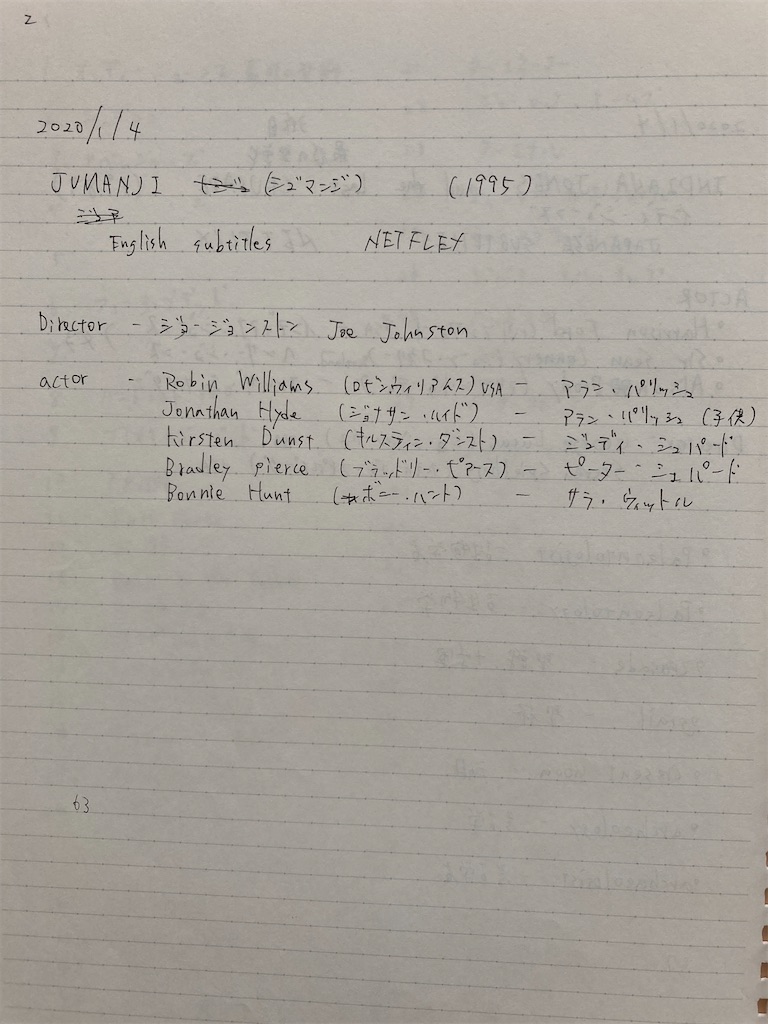 2
2020/1/4
JUMANJI (ジュマンジ) (1995)
English subtitles NETFLEX
Director - ジョー・ジョンストン Joe Johnston
actor - Robin Williams (ロビン・ウィリアムス) USA - アラン・パリッシュ
Jonathan Hyde (ジョナサン・ハイド) - アラン・パリッシュ (子供)
Kirsten Dunst (キルスティン・ダンスト) - ジュディ・シェパード
Bradley pierce (ブラッドリー・ピアース) - ピーター・シェパード
Bonnie Hunt (ボニー・ハント) - サラ・ウィットル
63